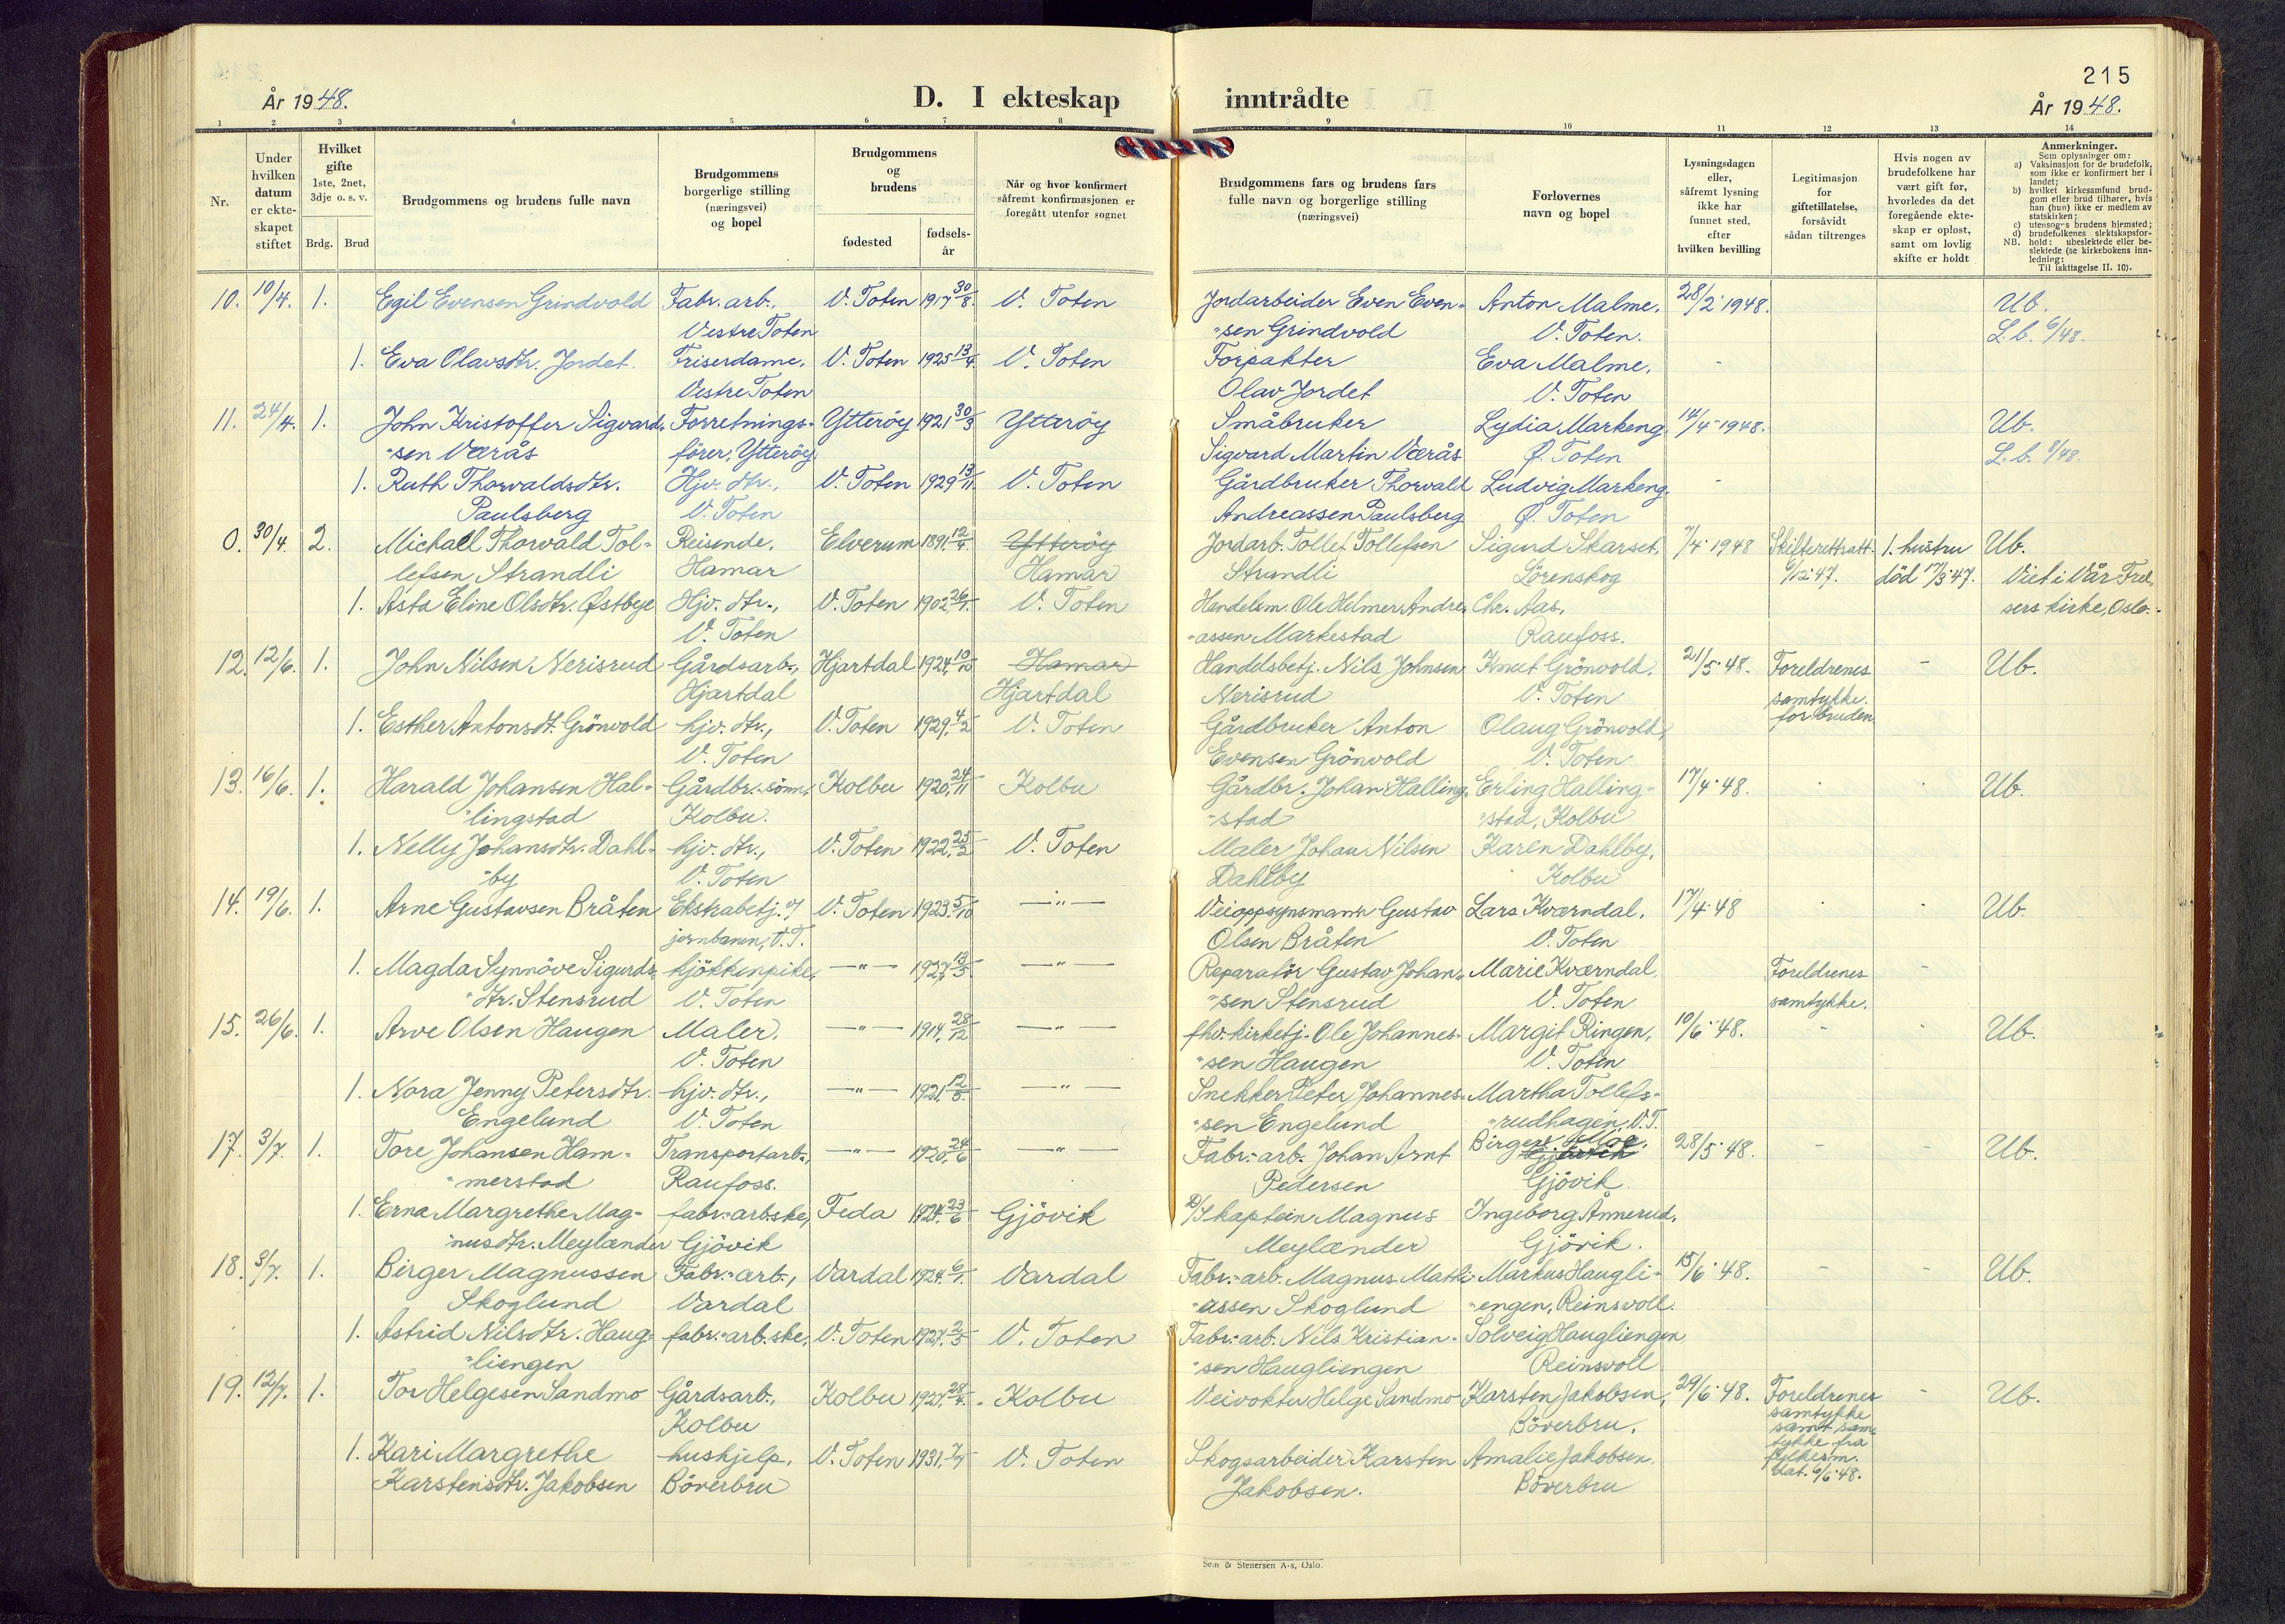 215
År 1948.
D. I ekteskap inntrådte
År 1948.
1 2 3 4 5 6 7 8 9 10 11 12 13 14
Nr.
Under hvilken datum er ekteskapet stiftet
Hvilket gifte 1ste, 2net, 3dje o. s. v.
Brdg. Brud
Brudgommens og brudens fulle navn
Brudgommens borgerlige stilling (næringsvei) og bopel
Brudgommens og brudens
fødested
fødsels-år
Når og hvor konfirmert såfremt konfirmasjonen er foregått utenfor sognet
Brudgommens fars og brudens fars fulle navn og borgerlige stilling (næringsvei)
Forlovernes navn og bopel
Lysningsdagen eller, såfremt lysning ikke har funnet sted, efter hvilken bevilling
Legitimasjon for giftetillatelse, forsåvidt sådan tiltrenges
Hvis nogen av brudefolkene har vært gift før, hvorledes da det foregående ekteskap er opløst, samt om lovlig skifte er holdt
Anmerkninger.
Som oplysninger om:
a) Vaksinasjon for de brudefolk, som ikke er konfirmert her i landet;
b) hvilket kirkesamfund brudgom eller brud tilhører, hvis han (hun) ikke er medlem av statskirken;
c) utensogns brudens hjemsted;
d) brudefolkenes slektskapsforhold: ubeslektede eller beslektede (se kirkebokens innledning:
NB. Til iakttagelse II. 10).
10. 10/4. 1. Egil Evensen Grindvold Fabr. arb., V. Toten 1917 30/8. V. Toten Jordarbeider Even Even- Anton Malme, 28/2 1948. Ub.
Vestre Toten "sen Grindvold V. Toten. L. b. 6/48.
1. Eva Olavsdtr. Jordet. Friserdame, V. Toten 1925 13/4. V. Toten Forpakter Eva Malme, -
Vestre Toten Olav Jordet V. Toten
11. 24/4. 1. John Kristoffer Sigvard- Forretnings- Ytterøy 1921 30/3 Ytterøy Småbruker Lydia Markeng 14/4 1948. Ub.
"sen Værås fører, Ytterøy Sigvard Martin Værås Ø. Toten L. b. 8/48.
1. Ruth Thorvaldsdtr. Hjv. dtr., V. Toten 1929 13/11. V. Toten Gårdbruker Thorvald Ludvig Markeng -
Paulsberg V. Toten Andreassen Paulsberg Ø. Toten
0. 30/4. 2. Michael Thorvald Tol- Reisende, Elverum 1891. 12/4. Ytterøy Jordarb. Tollef Tollefsen Sigurd Skarset, 7/4 1948 Skifterettsatt. 1. hustru Ub.
lefsen Strandli Hamar Hamar Strandli Lörenskog 6/12 47. död 17/3 47. Viet i Vår Frel-
1. Asta Eline Olsdtr. Østbye Hjv. dtr., V. Toten 1902 26/1. V. Toten Handelsm. Ole Helmer Andre- Chr. Aas, sers kirke, Oslo.
V. Toten "assen Markestad Raufoss.
12. 12/6. 1. John Nilsen Nerisrud Gårdsarb., Hjartdal 1924. 10/10 Hamar Handelsbetj. Nils Johnsen Knut Grönvold. 21/5 48. Foreldrenes - Ub.
Hjartdal Hjartdal Nerisrud V. Toten samtykke.
1. Esther Antonsdt. Grönvold hjv. dtr., V. Toten 1929. 4/2 V. Toten Gårdbruker Anton Olaug Grönvold, for bruden
V. Toten Evensen Grönvold V. Toten
13. 16/6. 1. Harald Johansen Hal- Gårdbr. sönn, Kolbu 1920. 24/11 Kolbu Gårdbr. Johan Halling- Erling Halling- 17/4 48. Ub.
"lingstad Kolbu. "stad "stad, Kolbu
1. Nelly Johansdtr. Dahl- hjv. dtr., V. Toten 1922. 25/2 V. Toten Maler Johan Nilsen Karen Dahlby,
"by V. Toten Dahlby Kolbu
14. 19/6. 1. Arne Gustavsen Bråten Ekstrabetj. v/ V. Toten 1923. 5/10 —"— Veioppsynsmann Gustav Lars Kværndal, 17/4 48 Ub.
jernbanen, V. T. Olsen Bråten V. Toten
1. Magda Synnöve Sigurds- kjökkenpike, —"— 1927. 13/5. —"— Reparatör Gustav Johan- Marie Kværndal, Foreldrenes -
"dtr. Stensrud V. Toten "sen Stensrud V. Toten samtykke.
15. 26/6. 1. Arve Olsen Haugen Maler, —"— 1914. 28/12 —"— fhv. kirketj. Ole Johannes- Margit Ringen, 10/6 48. - - Ub.
V. Toten "sen Haugen V. Toten
1. Nora Jenny Petersdtr. hjv. dtr., —"— 1921 12/8. —"— Snekker Peter Johannes- Martha Tollefs-
Engelund V. Toten "sen Engelund "rudhagen, V. T.
17. 3/7. 1. Tore Johansen Ham- Transportarb., —"— 1920. 24/6 —"— Fabr. arb. Johan Arnt Birger Moe, 28/5 48. - - Ub.
"merstad Raufoss. Pedersen Gjövik.
1. Erna Margrethe Mag- fabr. arb.ske, Feda 1924. 23/6 Gjövik D/S kaptein Magnus Ingeborg Ånnerud,
"nusdtr. Meylænder Gjövik Meylænder Gjövik.
18. 3/7. 1. Birger Magnussen Fabr. arb., Vardal 1924. 6/1. Vardal Fabr. arb. Magnus Matti- Markus Haugli- 15/6 48. - - Ub.
Skoglund Vardal "assen Skoglund "engen, Reinsvoll.
1. Astrid Nilsdtr. Haug- fabr. arb.ske, V. Toten 1927. 2/5 V. Toten Fabr. arb. Nils Kristian- Solveig Haugliengen
"liengen "sen Haugliengen Reinsvoll
19. 12/7. 1. Tor Helgesen Sandmo Gårdsarb., Kolbu 1927. 28/4. Kolbu Veivokter Helge Sandmo Karsten Jakobsen, 29/6 48. Foreldrenes - Ub.
Kolbu Böverbru. samtykke
samt sam-
tykke fra
1. Kari Margrethe huskjelp, V. Toten 1931. 7/7 V. Toten Skogsarbeider Karsten Amalie Jakobsen. fylkesm.
Karstensdtr. Jakobsen Böverbru Jakobsen. Böverbru dat. 6/6 48.
Sem & Stenersen A-s, Oslo.